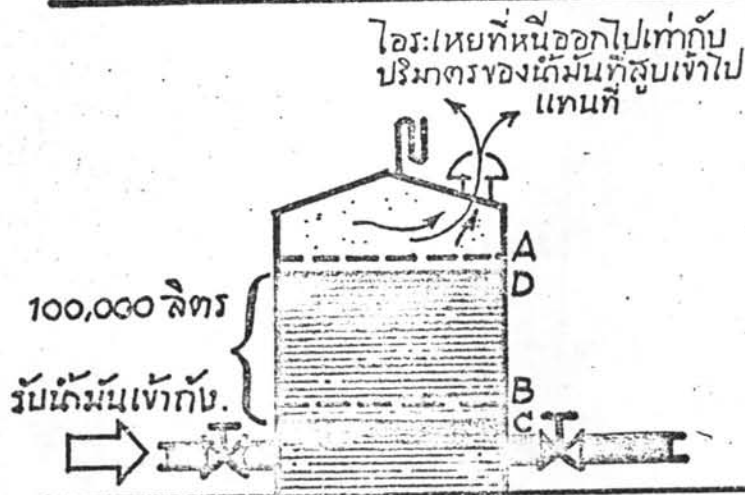 ไอระเหยที่หนีออกไปเท่ากับ
ปริมาตรของน้ำมันที่สูบเข้าไป
แทนที่
A
D
100,000 ลิตร
B
รับน้ำมันเข้าถัง.
C